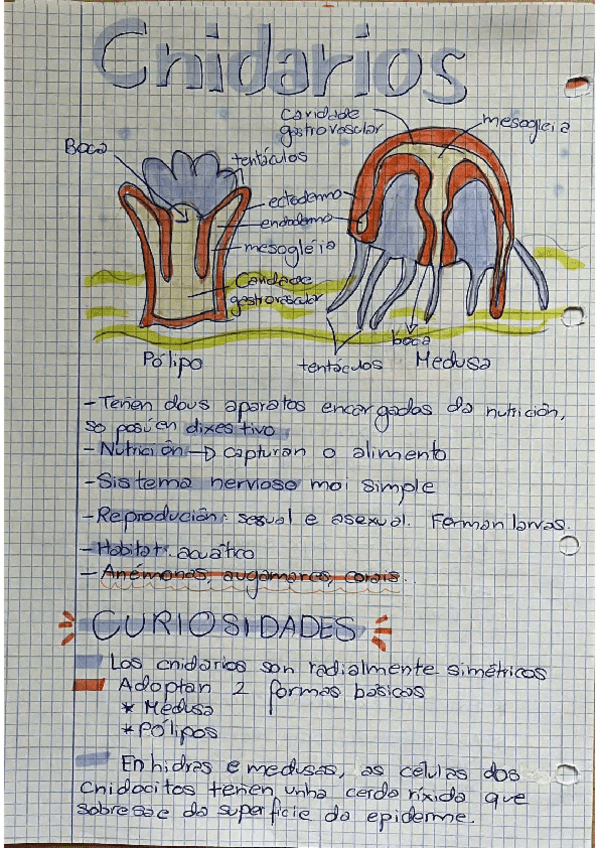 Cnidarios
Cavidade
gastrovascular
mesogleia
Boca
tentáculos
ectodermo
endodermo
mesogléia
Cavidade
gastrovascular
boca
Pólipo
tentáculos
Medusa
- Teñen dous aparatos encargados da nutrición,
so posúen dixestivo
- Nutrición → capturan o alimento
- Sistema nervioso moi simple
- Reprodución: sexual e asexual. Forman larvas.
- Habitat: acuático
- Anémonas, augamares, corais.
CURIOSIDADES
Los cnidarios son radialmente simétricos
Adoptan 2 formas basicos
* Medusa
* Pólipos
En hidras e medusas, as células dos
Cnidocitos teñen unha cerda ríxida que
sobresae da superficie da epiderme.